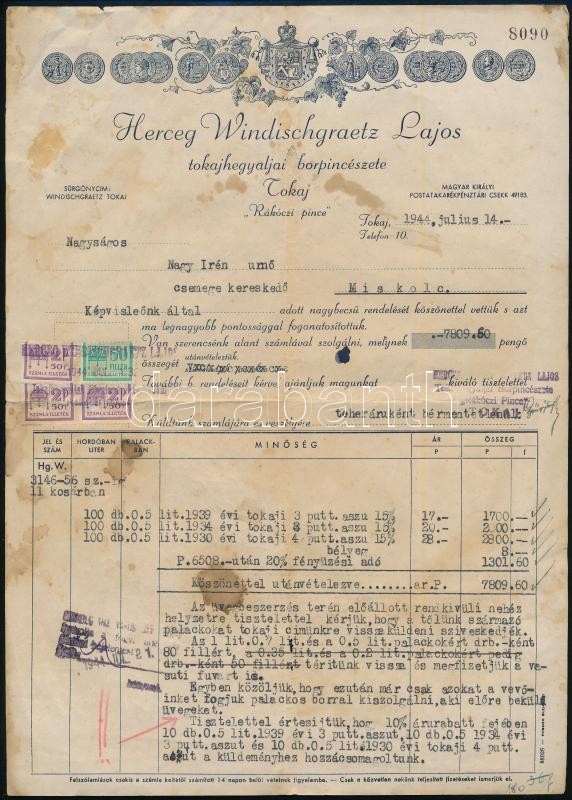 8090
Herceg Windischgraetz Lajos
tokajhegyaljai borpincészete
Tokaj
„Rákóczi pince"
SÜRGÖNYCIM:
WINDISCHGRAETZ TOKAJ
MAGYAR KIRÁLYI
POSTATAKARÉKPÉNZTÁRI CSEKK 49183.
Tokaj, 1944, julius 14.-
Telefon 10.
Nagyságos
Nagy Irén urnő
csemege kereskedő
Miskolc.
Képviselőnk által adott nagybecsű rendelését köszönettel vettük s azt
ma legnagyobb pontossággal foganatosítottuk.
Van szerencsénk alant számlával szolgálni, melynek .-7809.60 pengő
utánvételeztük
összegét
További b. rendeléseit kérve, ajánljuk magunkat kiváló tisztelettel
Küldtünk számlájára és veszélyére teheráruként bérmentetlenül
JEL ÉS SZÁM HORDÓBAN LITER PALACK-BAN MINŐSÉG ÁR P ÖSSZEG P f
Hg.W.
3146-56 sz.-ig
11 kosárban
100 db.0.5 lit.1939 évi tokaji 3 putt.aszu 15% 17.- 1700.--
100 db.0.5 lit.1934 évi tokaji 3 putt.aszu 15% 20.- 2000.--
100 db.0.5 lit.1930 évi tokaji 4 putt.aszu 15% 28.- 2800.--
bélyeg 8.--
P.6508.-után 20% fényüzési adó 1301.60
Köszönettel utánvételezve........ar.P. 7809.60
Az üvegbeszerzés terén előállott rendkivüli nehéz
helyzetre tisztelettel kérjük,hogy a tőlünk származó
palackokat tokaji cimünkre visszaküldeni sziveskedjék.
Az 1 lit.0.7 lit és a 0.5 lit.palackokért drb.-ként
80 fillért, a 0.35 lit és a 0.2 lit.palackokért pedig
drb.-ként 50 fillért téritünk vissza és megfizetjük a va-
suti fuvart is.
Egyben közöljük,hogy ezután már csak azokat a vevő-
inket fogjuk palackos borral kiszolgálni,aki előre beküld
üvegeket.
Tisztelettel értesitjük,hogy 10% árurabatt fejében
10 db.0.5 lit.1939 évi 3 putt.aszut,10 db.0.5 lit.1934 évi
3 putt.aszut és 10 db.0.5 lit.1930 évi tokaji 4 putt.
aszut a küldeményhez hozzácsomagoltunk.
Felszólamlások csakis a számla keltétől számított 14 napon belül vétetnek figyelembe. — Csak a közvetlen nekünk teljesített fizetéseket ismerjük el.
darabanth